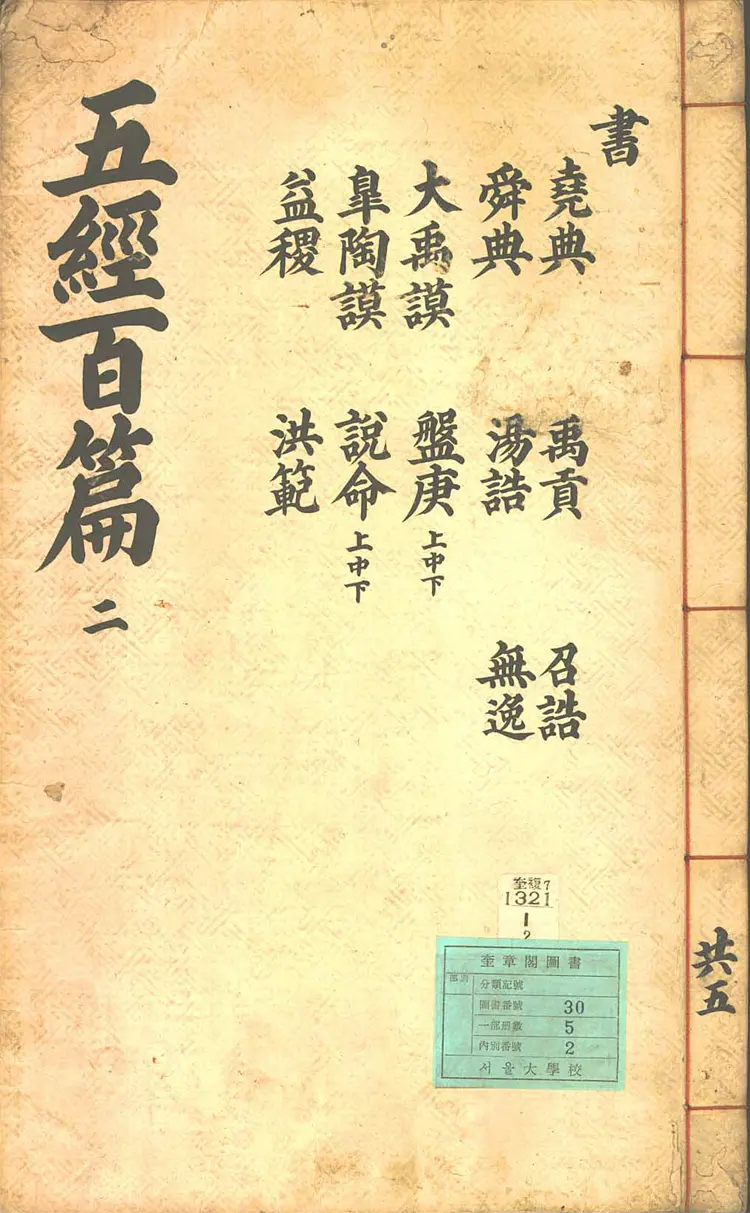 五經百篇 二
書
堯典
舜典
大禹謨
皐陶謨
益稷
禹貢
湯誥
盤庚 上中下
說命 上中下
洪範
召誥
無逸
共五
奎複7
1321
1
2
奎章閣圖書
部別
分類記號
圖書番號 30
一部冊數 5
內別番號 2
서울大學校